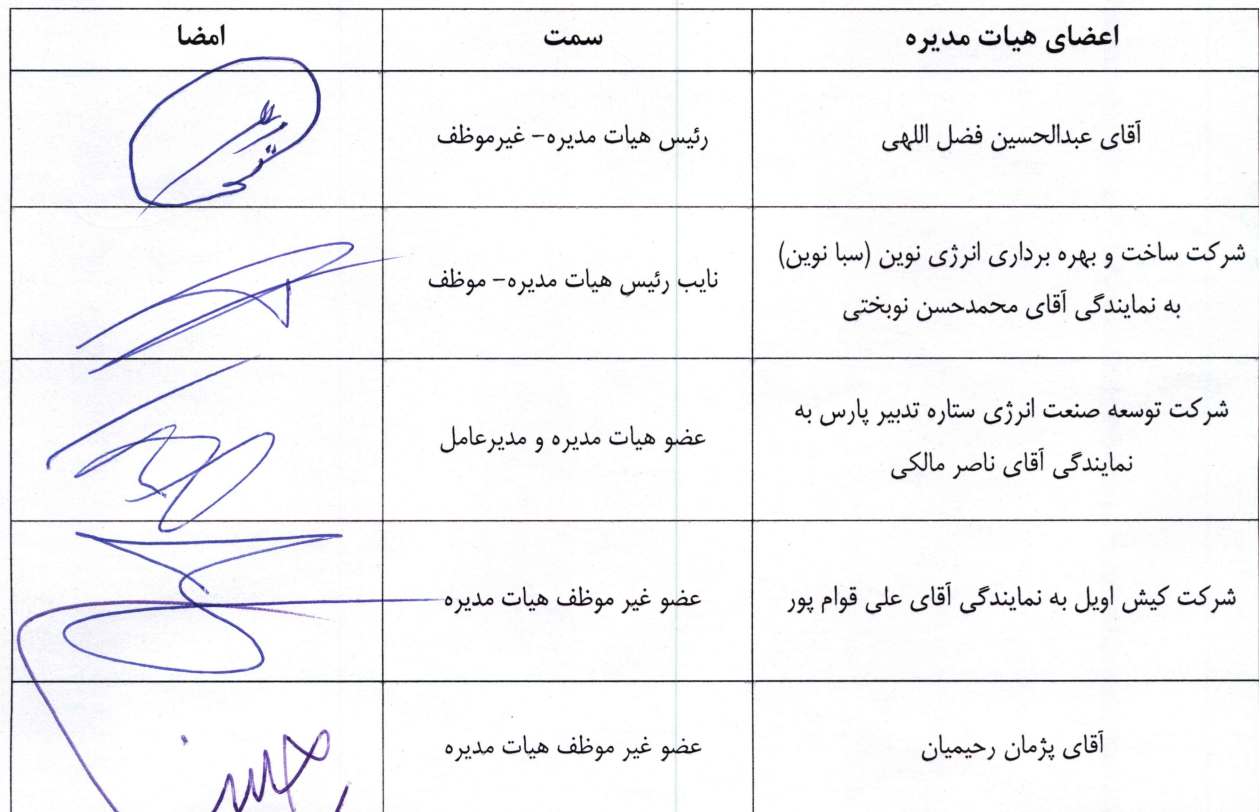 اعضای هیات مدیره	سمت	امضا
آقای عبدالحسین فضل اللهی	رئیس هیات مدیره- غیرموظف
شرکت ساخت و بهره برداری انرژی نوین (سبا نوین)
به نمایندگی آقای محمدحسن نوبختی	نایب رئیس هیات مدیره- موظف
شرکت توسعه صنعت انرژی ستاره تدبیر پارس به
نمایندگی آقای ناصر مالکی	عضو هیات مدیره و مدیرعامل
شرکت کیش اویل به نمایندگی آقای علی قوام پور	عضو غیر موظف هیات مدیره
آقای پژمان رحیمیان	عضو غیر موظف هیات مدیره